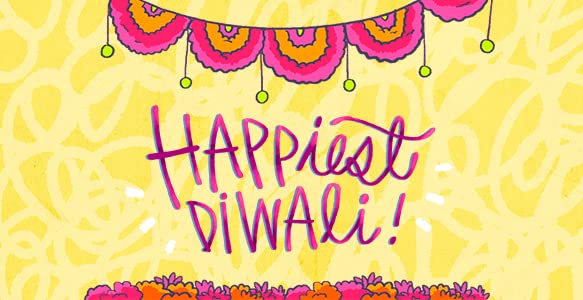 HAPPiest
DiWALi!